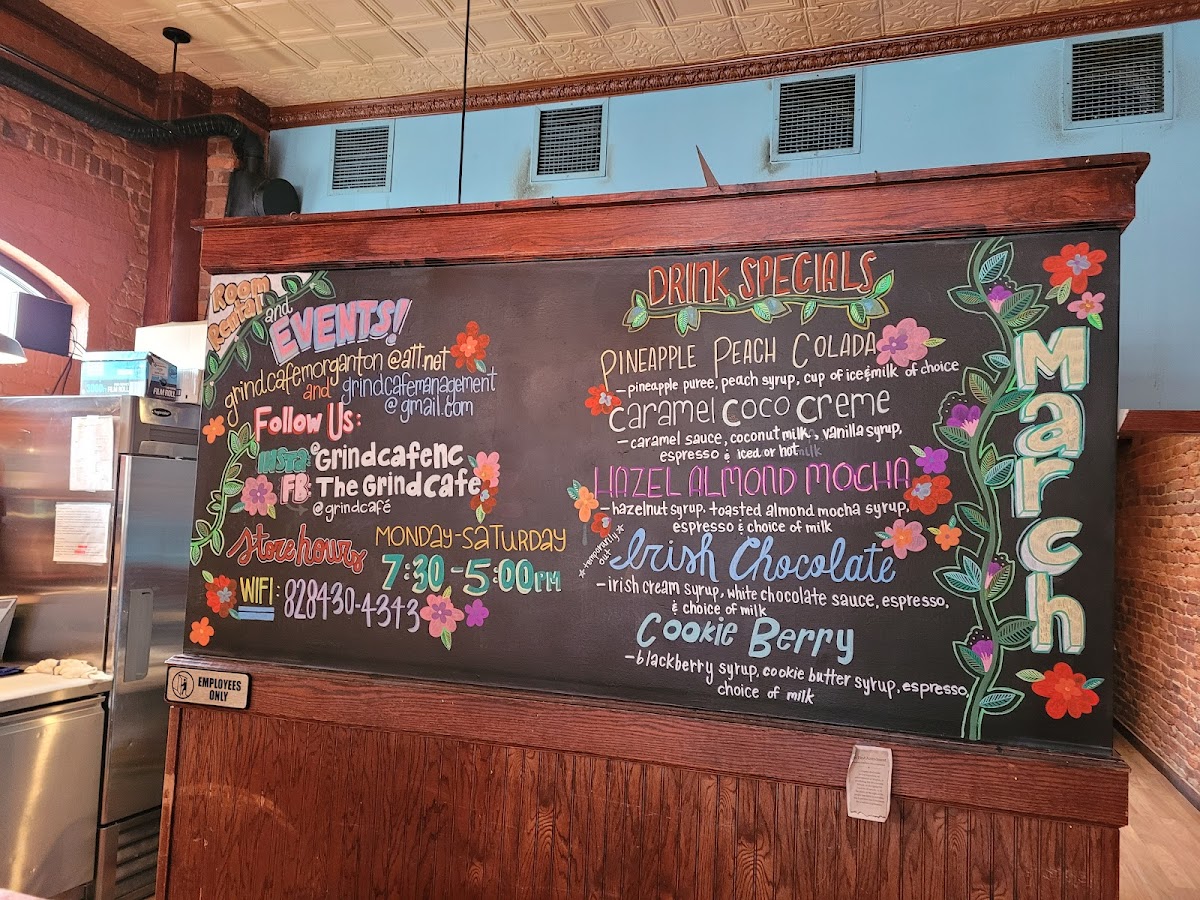 Room
Rental
and
EVENTS!
grindcafemorganton@att.net
and grindcafemanagement
@gmail.com
Follow Us:
Insta: @Grindcafenc
FB: The Grind Cafe
@grindcafé
Store hours
MONDAY-SATURDAY
7:30-5:00PM
WIFI: 828430-4343
DRINK SPECIALS
PINEAPPLE PEACH COLADA
-pineapple puree, peach syrup, cup of ice & milk of choice
Caramel Coco Creme
-caramel sauce, coconut milk, vanilla syrup,
espresso & iced or hot
HAZEL ALMOND MOCHA
-hazelnut syrup, toasted almond mocha syrup,
espresso & choice of milk
*temporarily
out*
Irish Chocolate
-irish cream syrup, white chocolate sauce, espresso,
& choice of milk
Cookie Berry
-blackberry syrup, cookie butter syrup, espresso,
choice of milk
March
EMPLOYEES
ONLY